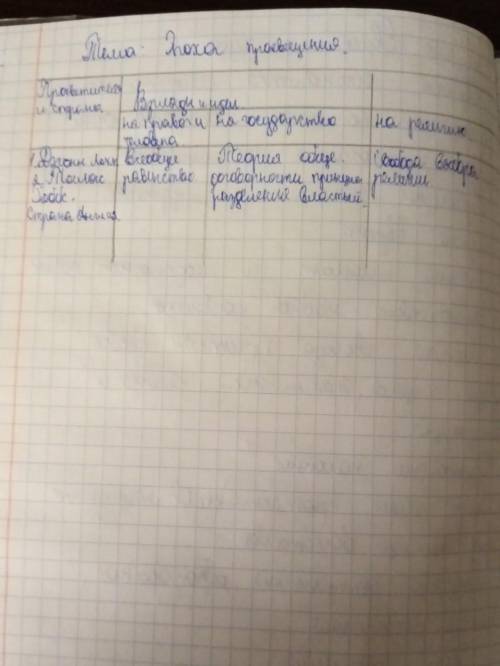 Тема: Эпоха просвещения.
Просветитель Взгляды и идеи
и страна
на права на государство на религию
человека
1. Джон Локк Всеобщее Теория обще- Свобода выбора
и Томас равенство договорности принцип религии
Гоббс. разделения властей.
Страна Англия